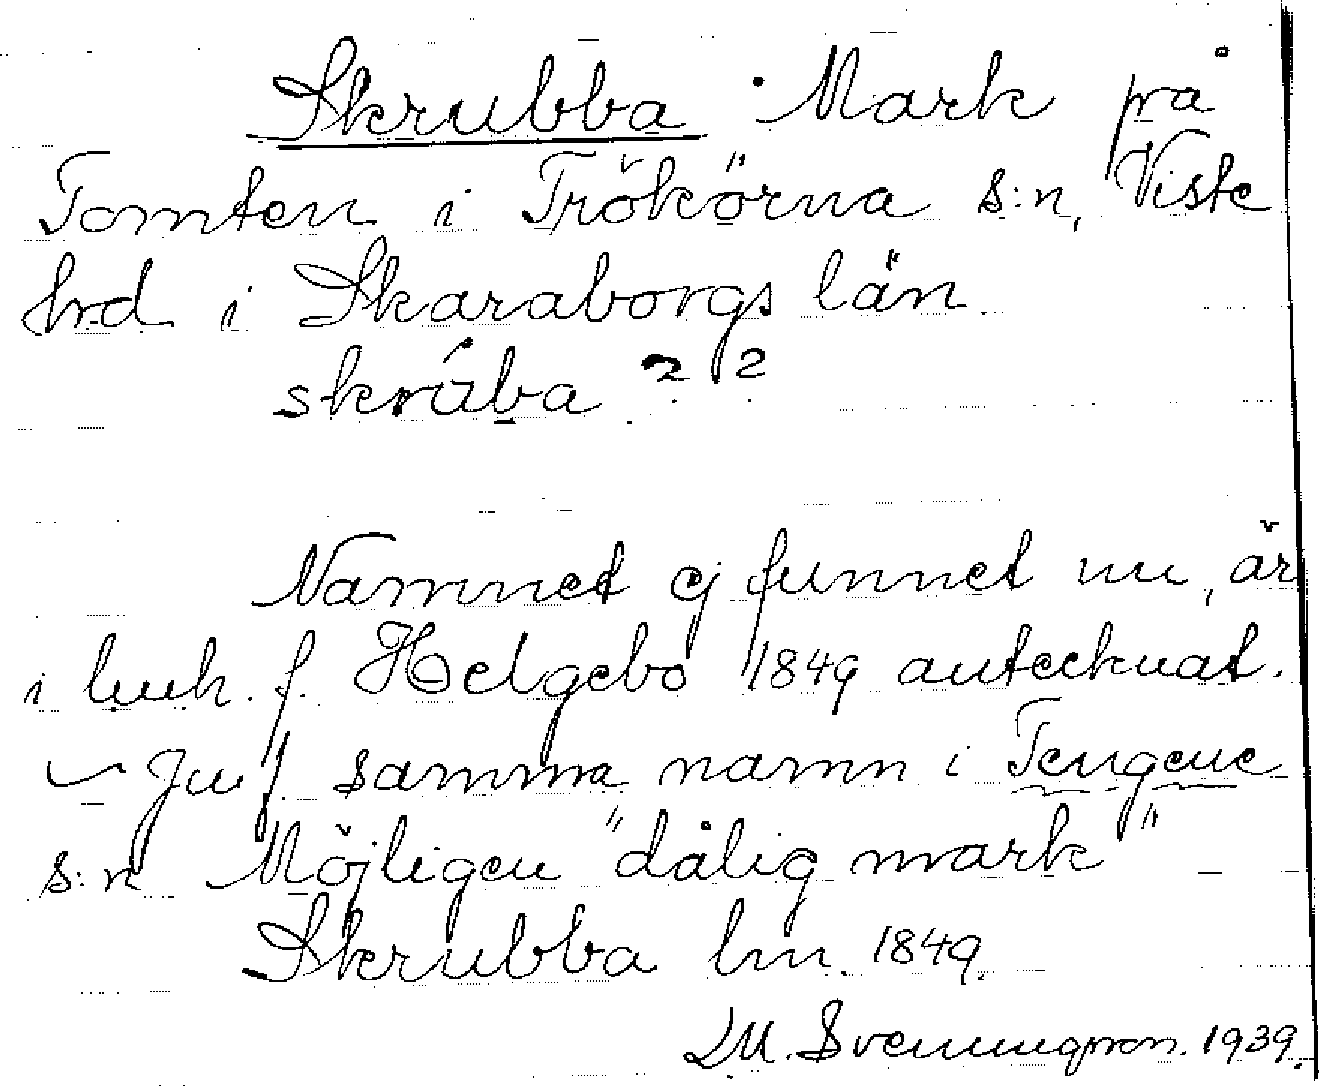 Skrubba . Mark på
Tomten i Trökörna s:n, Viste
hrd i Skaraborgs län
skrúba ? ?
Namnet ej funnet nu, är
i lmh. f. Helgebo 1849 antecknat.
Jmf samma namn i Tengene
s:n Möjligen "dålig mark"
Skrubba lm. 1849.
LM. Svenungsson. 1939.